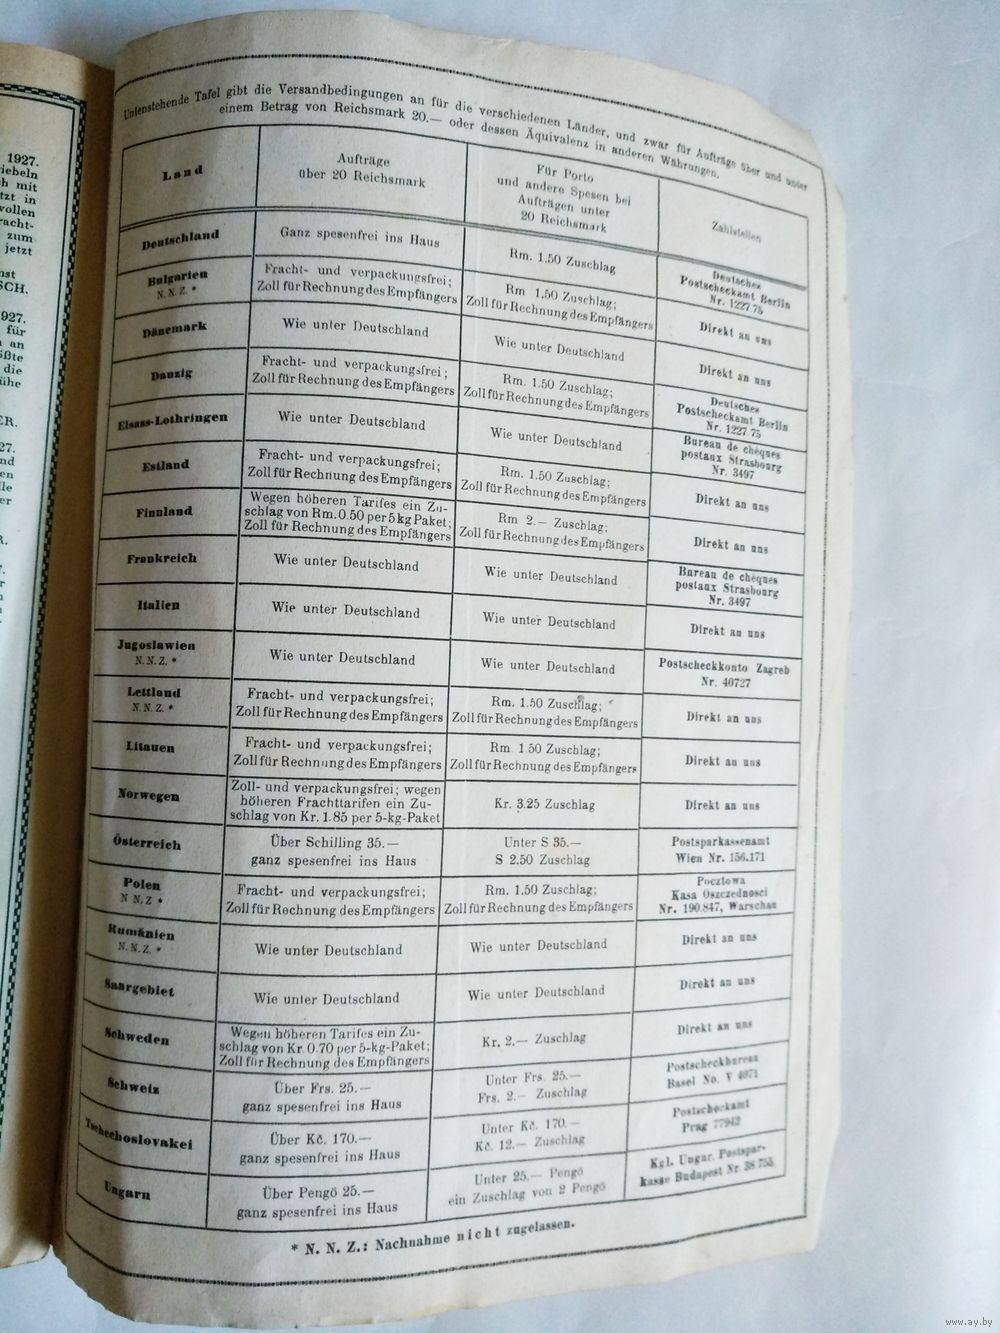 1927.
iebeln
h mit
tzt in
vollen
racht-
zum
jetzt
nst
SCH.
927.
für
an
ößte
die
ühe
ER.
27.
nd
en
lle
er
R.
Untenstehende Tafel gibt die Versandbedingungen an für die verschiedenen Länder, und zwar für Aufträge über und unter
einem Betrag von Reichsmark 20.— oder dessen Äquivalenz in anderen Währungen.
Land
Aufträge
über 20 Reichsmark
Für Porto
und andere Spesen bei
Aufträgen unter
20 Reichsmark
Zahlstellen
Deutschland
Ganz spesenfrei ins Haus
Rm. 1.50 Zuschlag
Deutsches
Postscheckamt Berlin
Nr. 1227 75
Bulgarien
N. N. Z. *
Fracht- und verpackungsfrei;
Zoll für Rechnung des Empfängers
Rm 1.50 Zuschlag;
Zoll für Rechnung des Empfängers
Direkt an uns
Dänemark
Wie unter Deutschland
Wie unter Deutschland
Direkt an uns
Danzig
Fracht- und verpackungsfrei;
Zoll für Rechnung des Empfängers
Rm. 1.50 Zuschlag;
Zoll für Rechnung des Empfängers
Deutsches
Postscheckamt Berlin
Nr. 1227 75
Elsass-Lothringen
Wie unter Deutschland
Wie unter Deutschland
Bureau de chèques
postaux Strasbourg
Nr. 3497
Estland
Fracht- und verpackungsfrei;
Zoll für Rechnung des Empfängers
Rm. 1.50 Zuschlag;
Zoll für Rechnung des Empfängers
Direkt an uns
Finnland
Wegen höheren Tarifes ein Zu-
schlag von Rm. 0.50 per 5 kg Paket;
Zoll für Rechnung des Empfängers
Rm 2.— Zuschlag;
Zoll für Rechnung des Empfängers
Direkt an uns
Frankreich
Wie unter Deutschland
Wie unter Deutschland
Bureau de chèques
postaux Strasbourg
Nr. 3497
Italien
Wie unter Deutschland
Wie unter Deutschland
Direkt an uns
Jugoslawien
N. N. Z. *
Wie unter Deutschland
Wie unter Deutschland
Postscheckkonto Zagreb
Nr. 40727
Lettland
N. N. Z. *
Fracht- und verpackungsfrei;
Zoll für Rechnung des Empfängers
Rm. 1.50 Zuschlag;
Zoll für Rechnung des Empfängers
Direkt an uns
Litauen
Fracht- und verpackungsfrei;
Zoll für Rechnung des Empfängers
Rm. 1 50 Zuschlag;
Zoll für Rechnung des Empfängers
Direkt an uns
Norwegen
Zoll- und verpackungsfrei; wegen
höheren Frachttarifen ein Zu-
schlag von Kr. 1.85 per 5-kg-Paket
Kr. 3.25 Zuschlag
Direkt an uns
Österreich
Über Schilling 35.—
ganz spesenfrei ins Haus
Unter S 35.—
S 2.50 Zuschlag
Postsparkassenamt
Wien Nr. 156.171
Polen
N N. Z *
Fracht- und verpackungsfrei;
Zoll für Rechnung des Empfängers
Rm. 1.50 Zuschlag;
Zoll für Rechnung des Empfängers
Pocztowa
Kasa Oszczednosci
Nr. 190.847, Warschau
Rumänien
N. N. Z. *
Wie unter Deutschland
Wie unter Deutschland
Direkt an uns
Saargebiet
Wie unter Deutschland
Wie unter Deutschland
Direkt an uns
Schweden
Wegen höheren Tarifes ein Zu-
schlag von Kr 0.70 per 5-kg-Paket;
Zoll für Rechnung des Empfängers
Kr. 2.— Zuschlag
Direkt an uns
Schweiz
Über Frs. 25.—
ganz spesenfrei ins Haus
Unter Frs. 25.—
Frs. 2.— Zuschlag
Postscheckbureau
Basel No. V 4071
Tschechoslovakei
Über Kč. 170.—
ganz spesenfrei ins Haus
Unter Kč. 170.—
Kč. 12.— Zuschlag
Postscheckamt
Prag 77942
Ungarn
Über Pengö 25.—
ganz spesenfrei ins Haus
Unter 25.— Pengö
ein Zuschlag von 2 Pengö
Kgl. Ungar. Postspar-
kasse Budapest Nr. 38 755
* N. N. Z.: Nachnahme nicht zugelassen.
www.ay.by